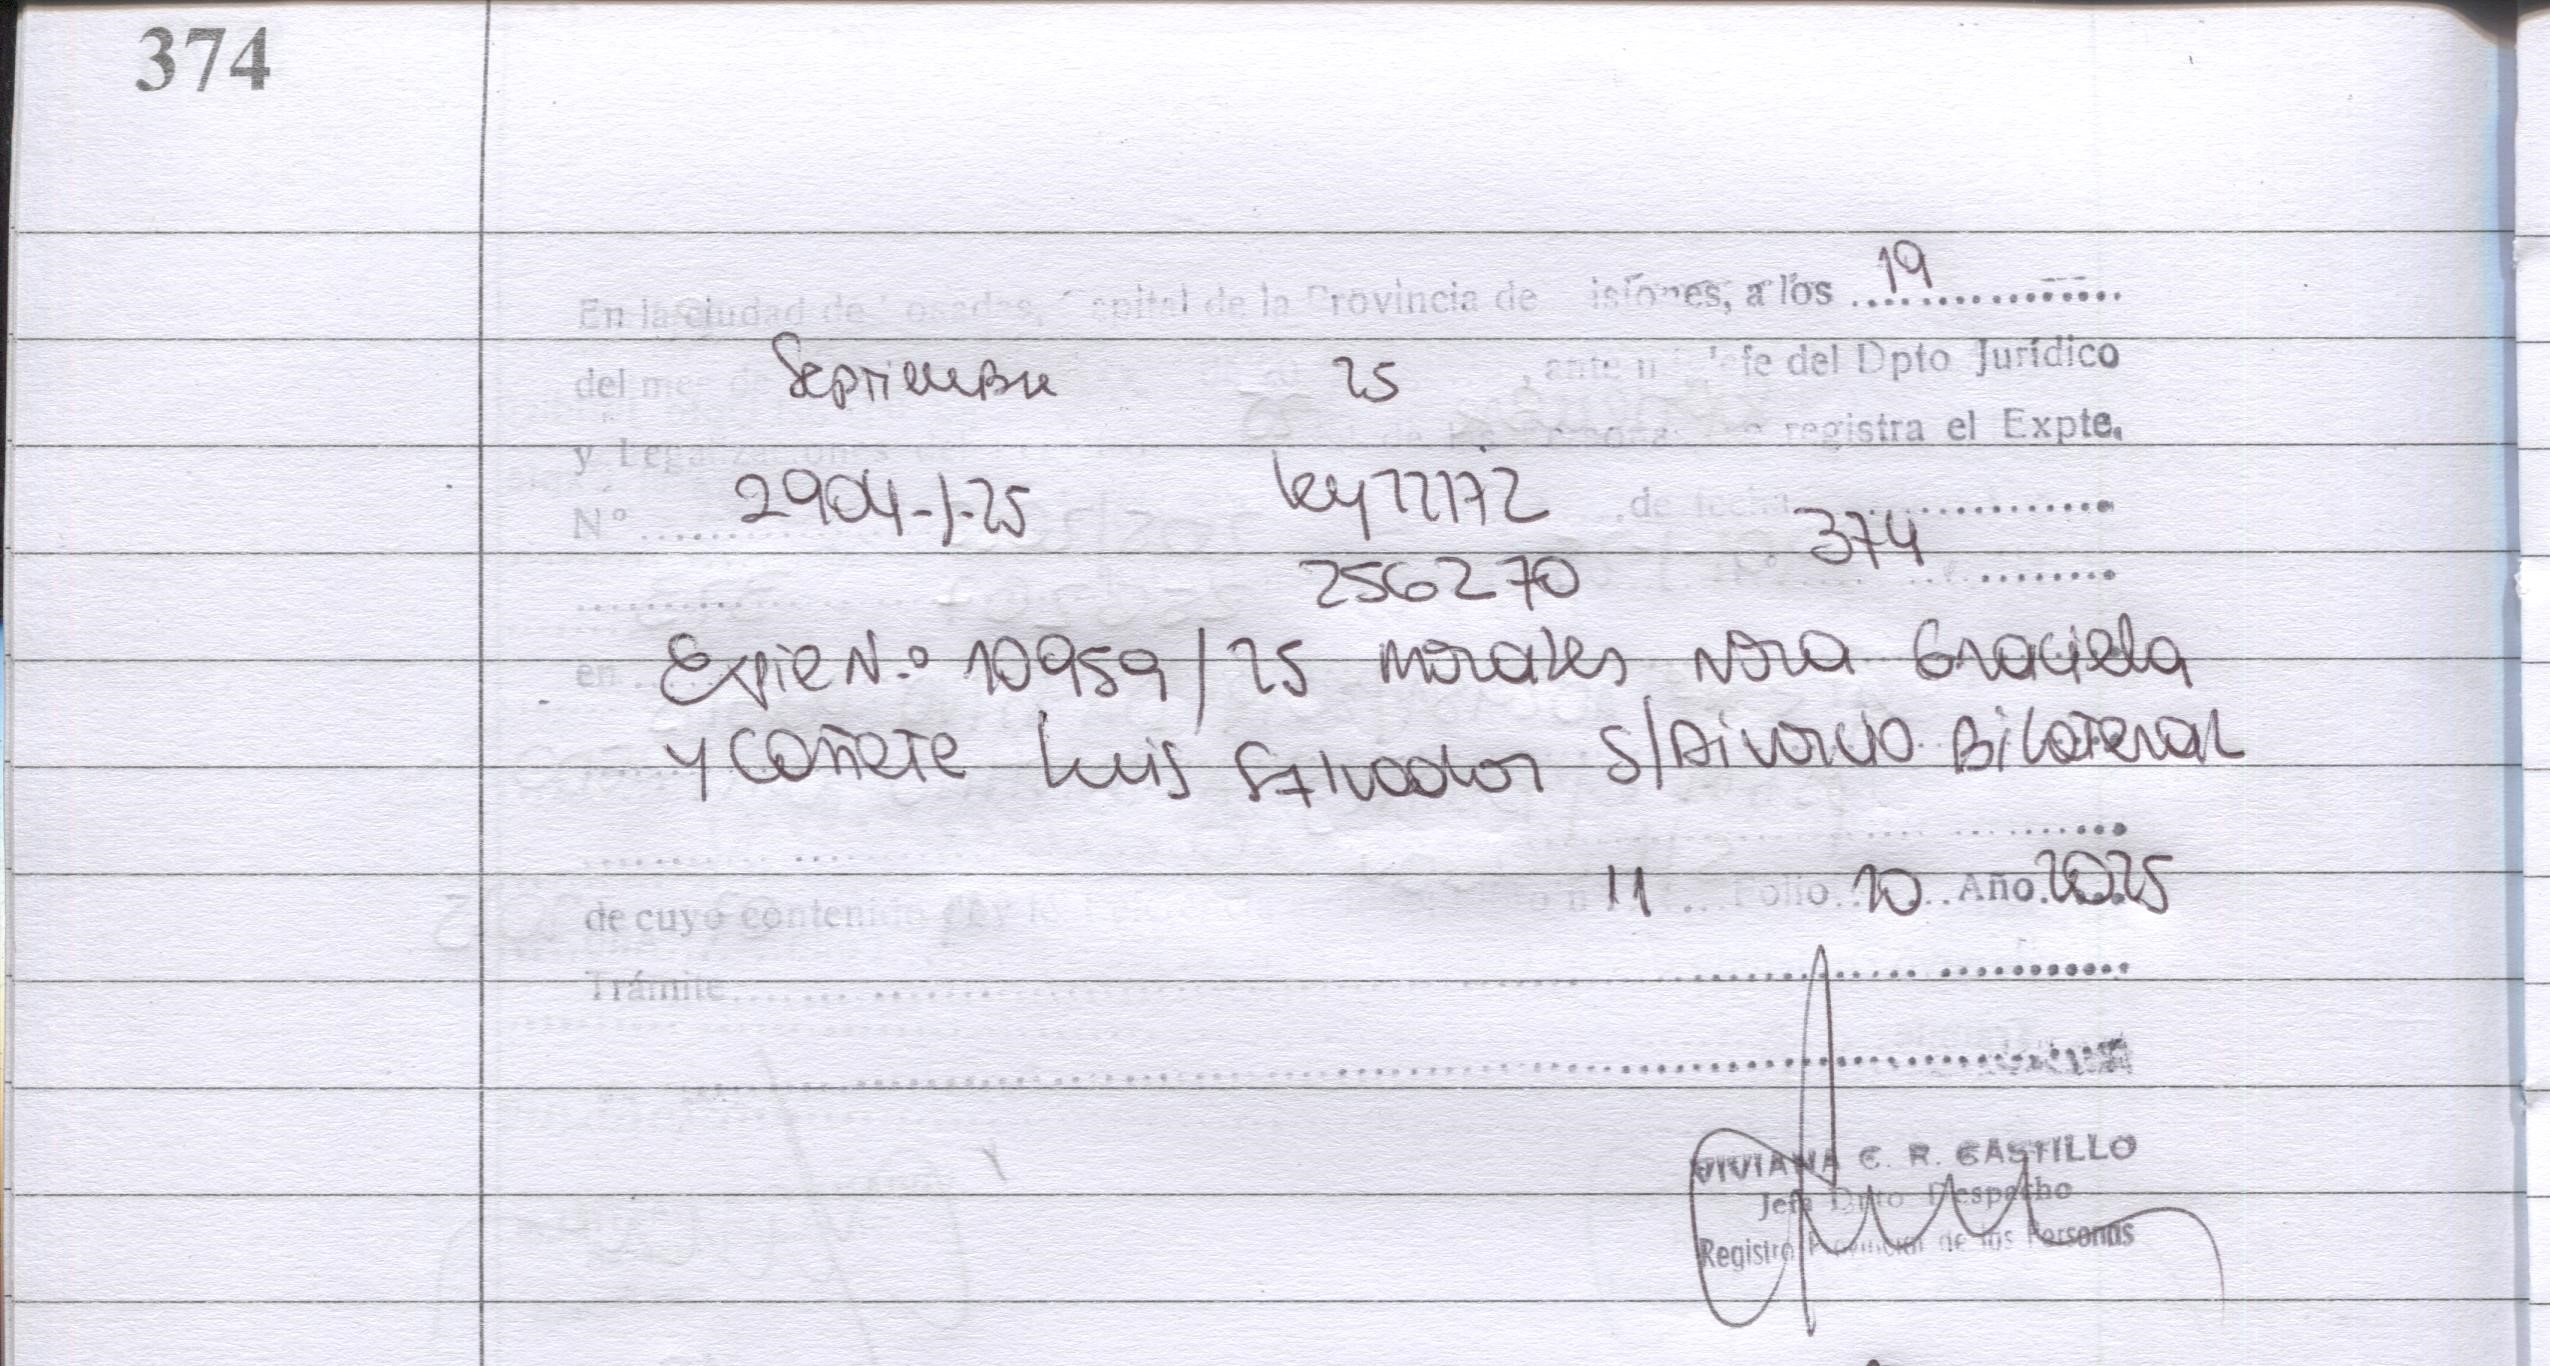 374
En la ciudad de Posadas, Capital de la Provincia de Misiones, a los 19
del mes de Septiembre 25, ante mi Jefe del Dpto Jurídico
y Legalizaciones registra el Expte.
N° 2904-J-25 Ley 22172 de fecha
2562 70 N° 374
en Expte N.° 10959/25 Morales Nora Graciela
y Cañete Luis Salvador S/Divorcio Bilateral
de cuyo contenido doy fe 11 Folio 10 Año 2025
Trámite
VIVIANA C. R. CASTILLO
Jefa Dpto Despacho
Registro Provincial de las Personas